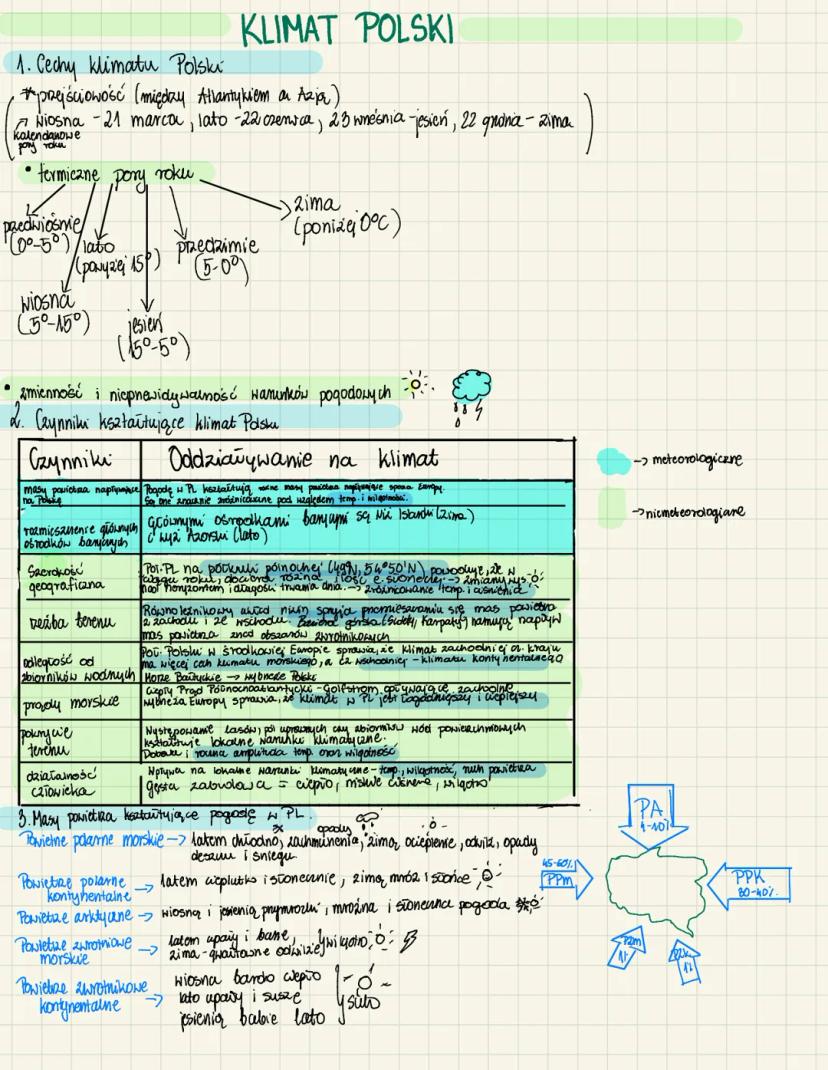 KLIMAT POLSKI
1. Cechy klimatu Polski
* przejściowość (między Atlantykiem a Azją)
wiosna - 21 marca, lato - 22 czerwca, 23 wneśnia - jesień, 22 grudnia - zima
kalendarzowe
pory roku
• termiczne pory roku
zima
(poniżej 0°C)
przedwiośnie
(0°-5°)
lato
(powyżej 15°)
przedzimie
(5-0°)
wiosna
(5°-15°)
jesień
(15°-5°)
• zmienność i nieprzewidywalność warunków pogodowych
2. Czynniki kształtujące klimat Polski
Czynniki
Oddziaływanie na klimat
→ meteorologiczne
masy powietrza napływające
na Polskę
Pogodę w PL kształtują różne masy powietrza napływające spoza Europy.
Są one znacznie zróżnicowane pod względem temp. i wilgotności.
rozmieszczenie głównych
ośrodków barycznych
Głównymi ośrodkami barycznymi są Niż Islandzki (zima)
i Wyż Azorski (lato)
→ niemeteorologiczne
Szerokość
geograficzna
Poł. PL na półkuli północnej (49°N, 54°50'N) powoduje, że w
ciągu roku, dociera różna ilość e. słonecznej → zmiany wys.
nad horyzontem i długości trwania dnia. → zróżnicowanie temp. i ciśnienia
rzeźba terenu
Równoleżnikowy układ nizin sprzyja przemieszczaniu się mas powietrza
z zachodu i ze wschodu. Bariera górska (Sudety, Karpaty) hamują napływ
mas powietrza znad obszarów zwrotnikowych
odległość od
zbiorników wodnych
Poł. Polski w środkowej Europie sprawia, że klimat zachodniej cz. kraju
ma więcej cech klimatu morskiego, a cz. wschodniej - klimatu kontynentalnego
Morze Bałtyckie → wybrzeże Polski
prądy morskie
Ciepły Prąd Północnoatlantycki - Golfsztrom opływające zachodnie
wybrzeża Europy sprawia, że klimat w PL jest łagodniejszy i cieplejszy
pokrycie
terenu
Występowanie lasów, pól uprawnych czy zbiorników wód powierzchniowych
kształtuje lokalne warunki klimatyczne.
Dobowe i roczna amplituda temp. oraz wilgotność
działalność
człowieka
Wpływa na lokalne warunki klimatyczne - temp., wilgotność, ruch powietrza
Gęsta zabudowa = ciepło, niskie ciśnienie, wilgotno
3. Masy powietrza kształtujące pogodę w PL.
Powietrze polarne morskie → latem chłodno, zachmurzenia, opady, zimą ocieplenie, odwilż, opady
deszczu i śniegu
Powietrze polarne
kontynentalne → latem cieplutko i słonecznie, zimą mróz i słońce
Powietrze arktyczne → wiosną i jesienią przymrozki, mroźna i słoneczna pogoda
Powietrze zwrotnikowe
morskie → latem upały i burze, wilgotno
zima - gwałtowne odwilże
Powietrze zwrotnikowe
kontynentalne → wiosna bardzo ciepło
lato upały i susze
jesienią babie lato
sucho
PA
4-10%
45-60%
PPm
PPK
30-40%
PZm
1%
PZK
1%